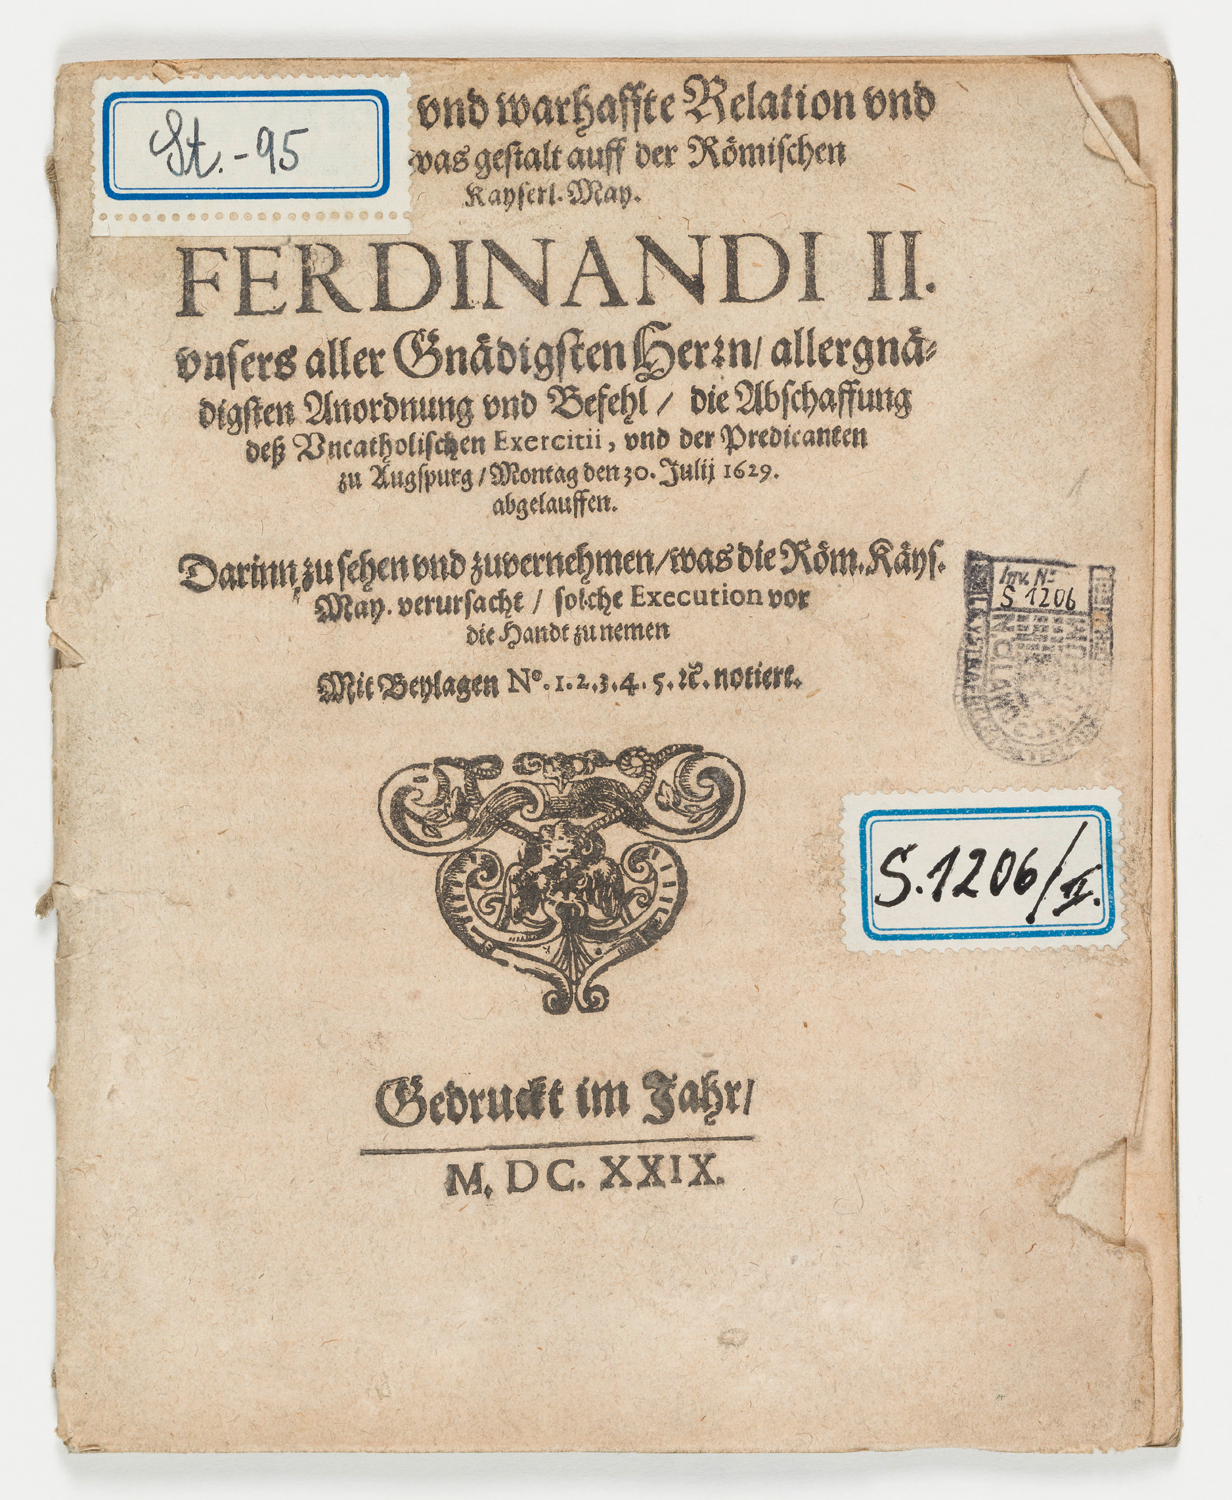 St.-95
vnd warhaffte Relation vnd
was gestalt auff der Römischen
Kayserl. May.
FERDINANDI II.
vnsers aller Gnädigsten Herrn/ allergnä-
digsten Anordnung vnd Befehl / die Abschaffung
deß Vncatholischen Exercitii, vnd der Predicanten
zu Augspurg / Montag den 30. Julij 1629.
abgelauffen.
Darinn zu sehen vnd zuvernehmen/was die Röm. Käys.
May. verursacht / solche Execution vor
die Handt zu nemen
Mit Beylagen Nº. 1. 2. 3. 4. 5. ꝛc. notiert.
Inv. Nº
S 1206
S. 1206/II.
Gedruckt im Jahr/
M. DC. XXIX.